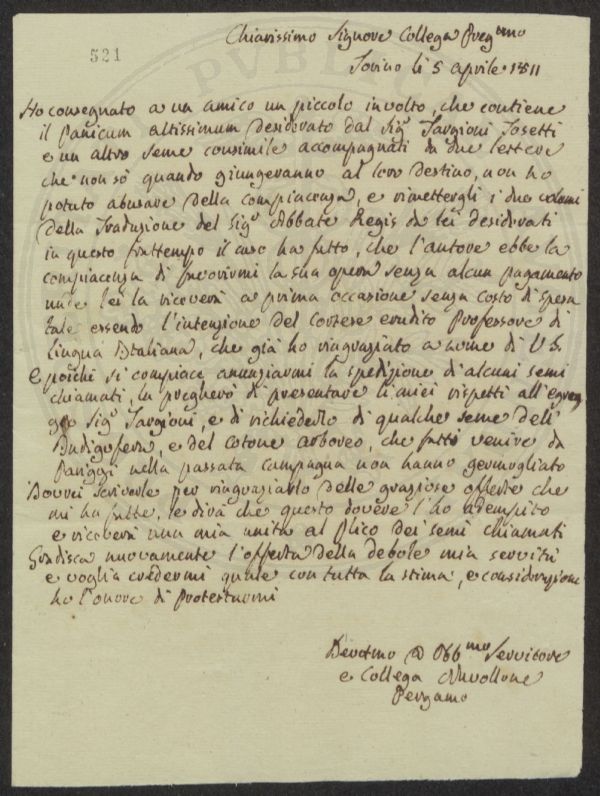 521
Chiarissimo Signore Collega Preg.mo
Torino li 5 aprile 1811
Ho consegnato a un amico un piccolo involto, che contiene
il panicum altissimum desiderato dal Sig.r Targioni Tosetti
e un altro seme consimile accompagnati da due lettere
che non sò quando giungeranno al loro destino, non ho
potuto abusare della compiacenza, e rimettergli i due volumi
della Traduzione del Sig.r Abbate Regis da lei desiderati
in questo frattempo il caso ha fatto, che l'autore ebbe la
compiacenza di favorirmi la sua opera senza alcun pagamento
onde lei la riceverà a prima occasione senza costo di spesa
tale essendo l'intenzione del cortese erudito Professore di
Lingua Italiana, che già ho ringraziato a nome di V.S.
E poichè si compiace annunziarmi la spedizione di alcuni semi
chiamati, la pregherò di presentare li miei rispetti all'egreg
gio Sig.r Targioni, e di richiederlo di qualche seme dell'
Indigofera, e del cotone arboreo, che fatti venire da
Pariggi nella passata campagna non hanno germogliato
Dovrei scriverle per ringraziarlo delle graziose offerte che
mi ha fatte, le dirà che questo dovere l'ho adempito
e riceverà una mia unita al plico dei semi chiamati
Gradisca nuovamente l'offerta della debole mia servitù
e voglia credermi quale con tutta la stima, e considerazione
ho l'onore di protestarmi
Devotmo ed Obb.mo Servitore
e Collega Nuvollone
Pergamo